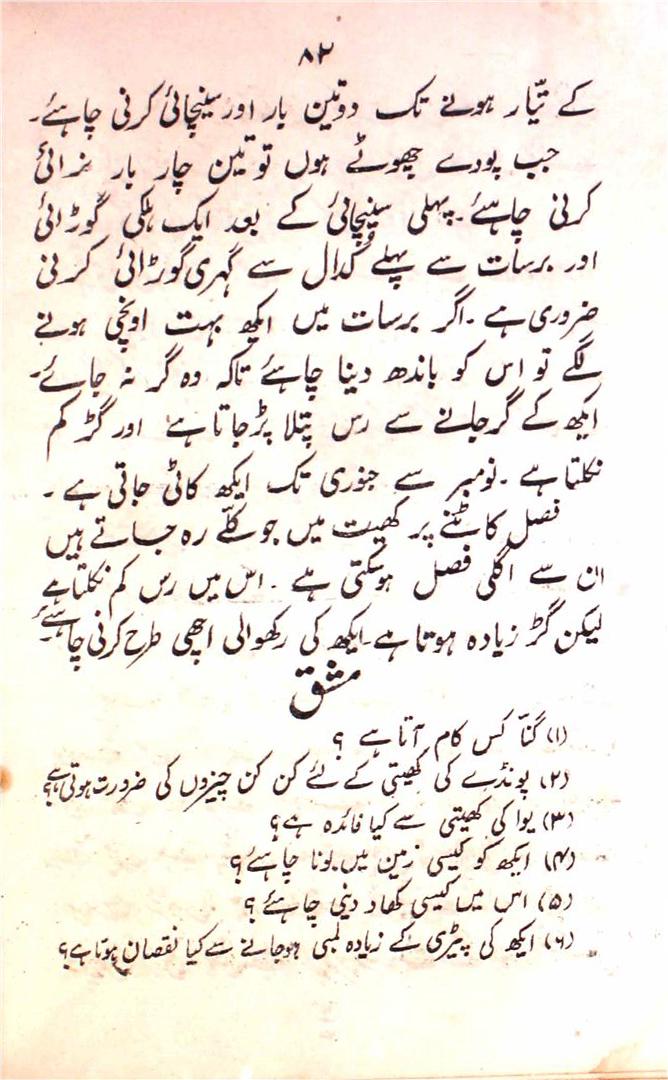 ۸۲
کے تیّار ہونے تک دو تین بار اور سینچائی کرنی چاہئے۔
جب پودے چھوٹے ہوں تو تین چار بار نرائی
کرنی چاہئے۔ پہلی سینچائی کے بعد ایک ہلکی گوڑائی
اور برسات سے پہلے کُدال سے گہری گوڑائی کرنی
ضروری ہے۔ اگر برسات میں ایکھ بہت اونچی ہونے
لگے تو اس کو باندھ دینا چاہئے تاکہ وہ گر نہ جائے۔
ایکھ کے گر جانے سے رس پتلا پڑ جاتا ہے اور گڑ کم
نکلتا ہے۔ نومبر سے جنوری تک ایکھ کاٹی جاتی ہے۔
فصل کاٹنے پر کھیت میں جو کلّے رہ جاتے ہیں
ان سے اگلی فصل ہوسکتی ہے۔ اس میں رس کم نکلتا ہے
لیکن گڑ زیادہ ہوتا ہے۔ ایکھ کی رکھوالی اچھی طرح کرنی چاہئے۔
مشق
(۱) گنّا کس کام آتا ہے ؟
(۲) پونڈے کی کھیتی کے لئے کن کن چیزوں کی ضرورت ہوتی ہے؟
(۳) یوا کی کھیتی سے کیا فائدہ ہے؟
(۴) ایکھ کو کیسی زمین میں بونا چاہئے؟
(۵) اس میں کیسی کھاد دینی چاہئے ؟
(۶) ایکھ کی پیڑی کے زیادہ لمبی ہوجانے سے کیا نقصان ہوتا ہے؟